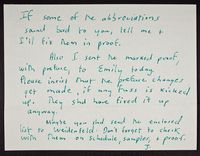 If some of the abbreviations
sound bad to you, tell me &
I'll fix them in proof.
Also I sent the marked proof,
with preface, to Emily today.
Please insist that the preface changes
get made, if any fuss is kicked
up. They shd have fixed it up
anyway.
Maybe you shd send the enclosed
list to Weidenfeld. Don't forget to check
with them on schedule, sampler, + proof.
J